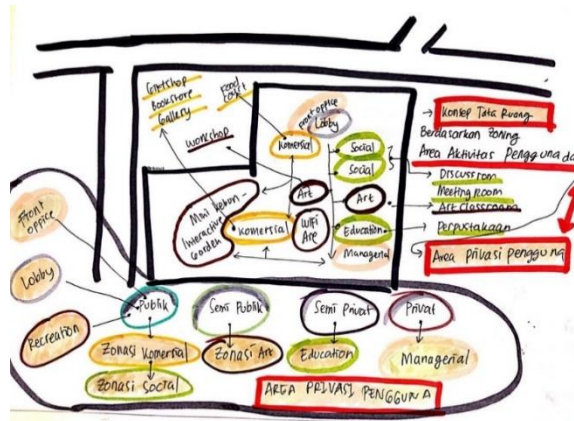 Giftshop
Bookstore
Gallery
Food
Court
Workshop
Front office
Lobby
Komersial
Social
Social
Art
Art
Mini Kebun
Interactive
Garden
Komersial
WiFi
Are
Education
Managerial
Konsep Tata Ruang
Berdasarkan Zoning
Area Aktivitas Pengguna da
Discussroom
Meeting Room
Art Classroom
Perpustakaan
Area Privasi Pengguna
Front
office
Lobby
Recreation
Publik
Semi Publik
Semi Privat
Privat
Zonasi Komersial
Zonasi Art
Education
Managerial
Zonasi Social
AREA PRIVASI PENGGUNA